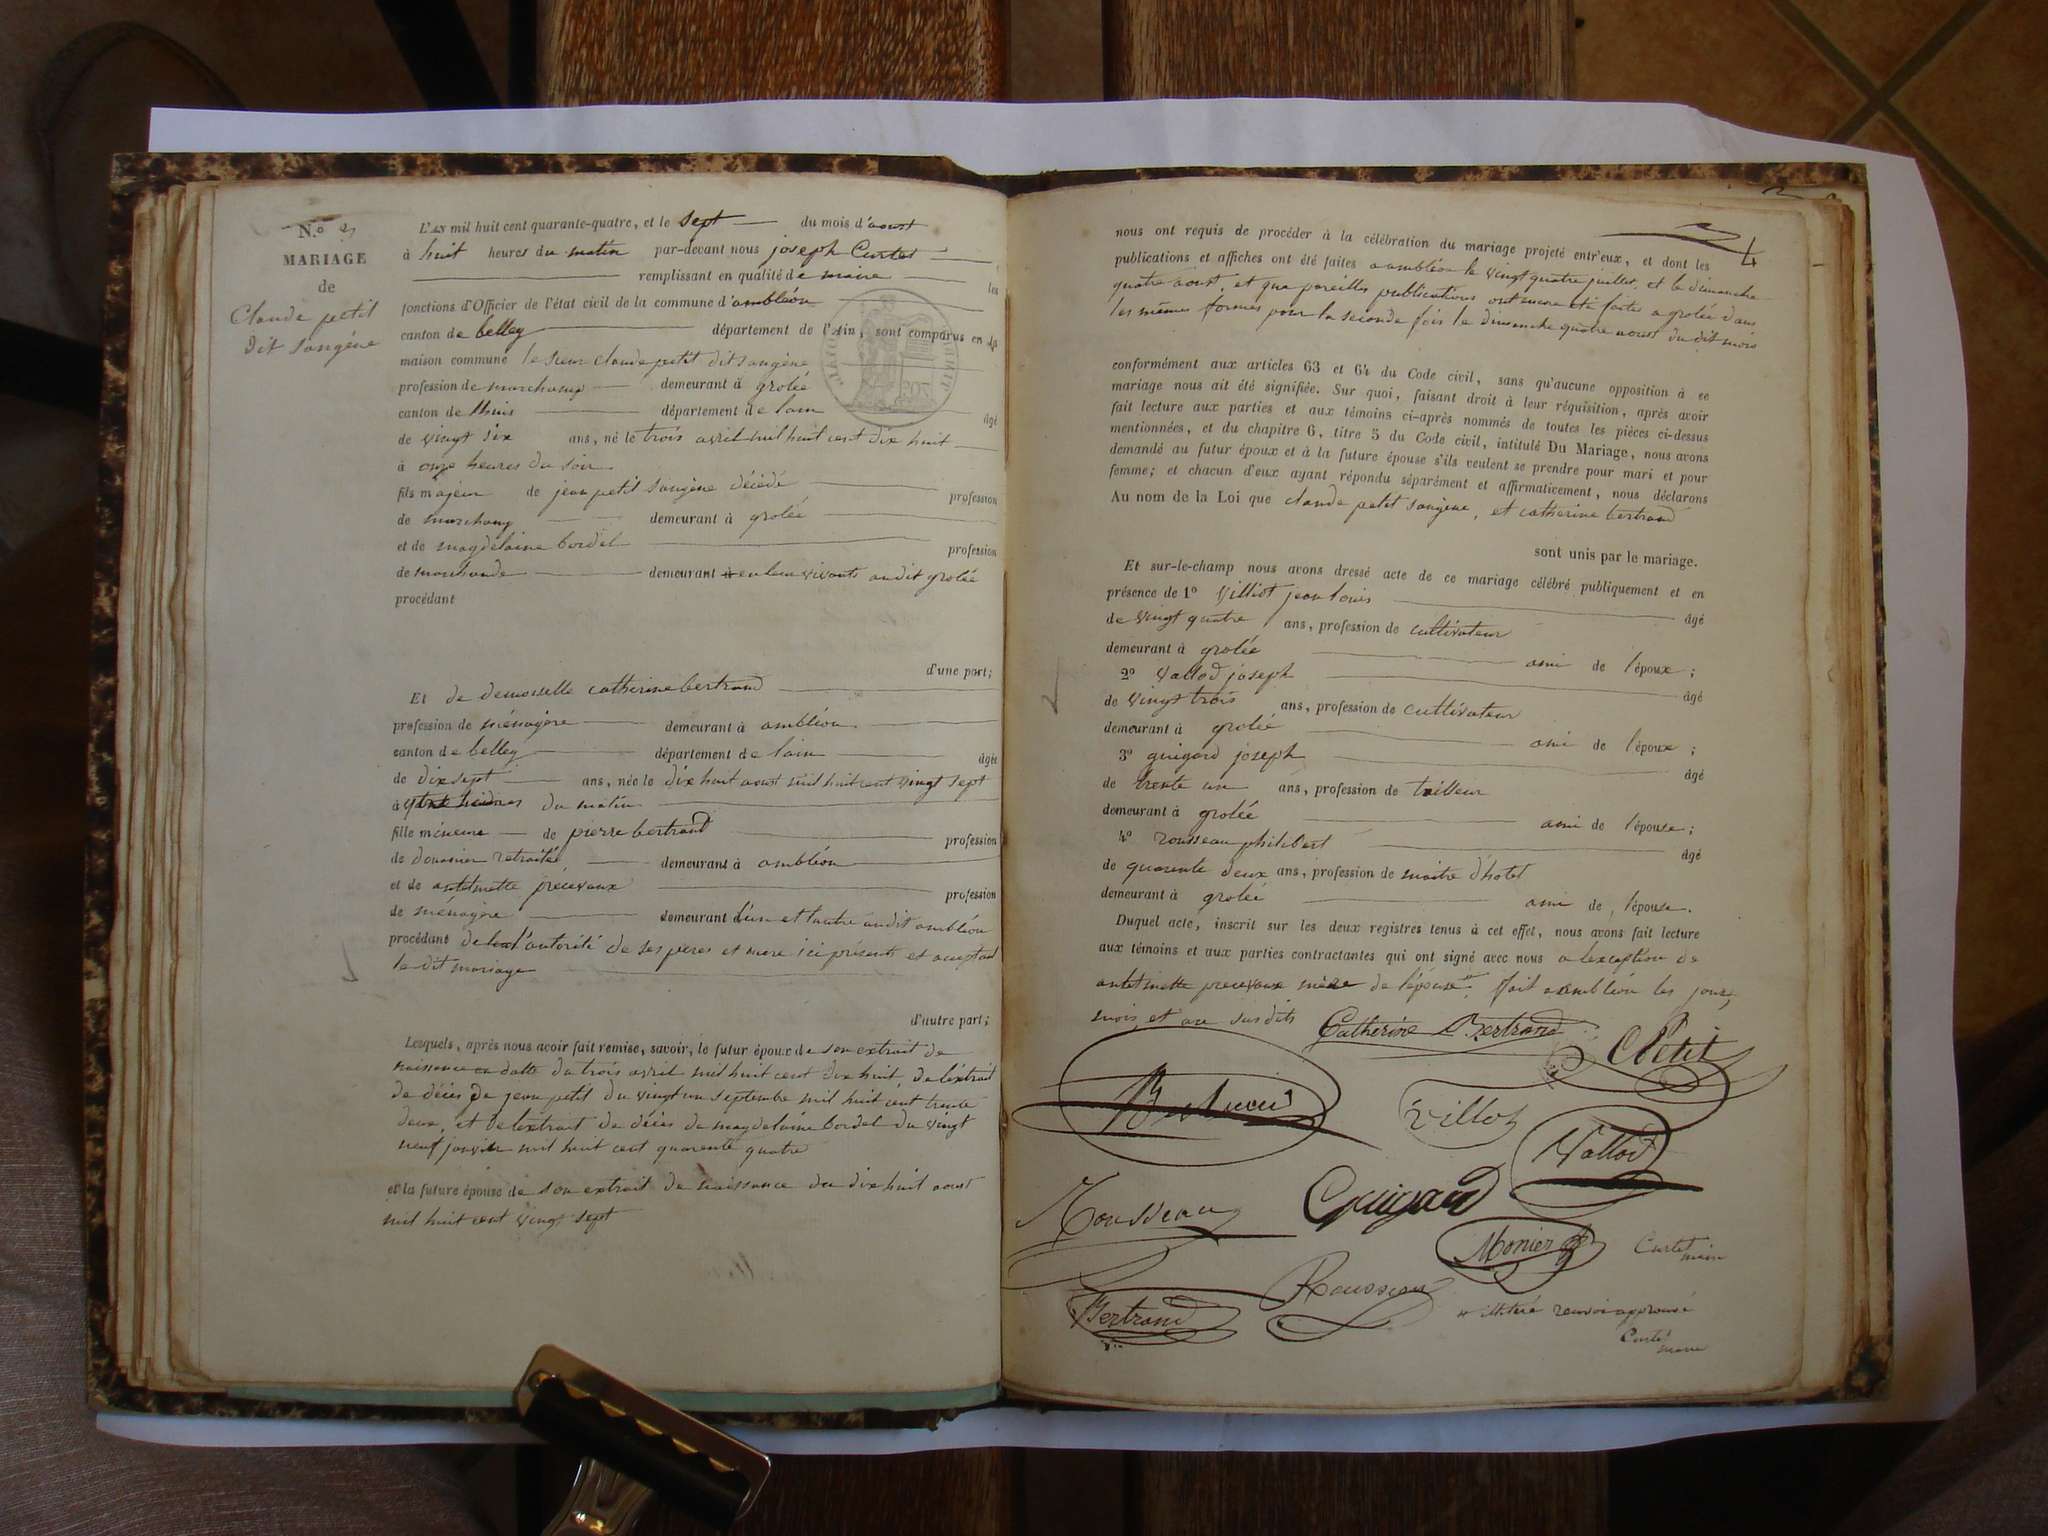 N.o 2
MARIAGE
de
Claude petit
dit sangène
L'AN mil huit cent quarante-quatre, et le sept du mois d'aoust
à huit heures du matin par-devant nous joseph Curtet
remplissant en qualité de maire les
fonctions d'Officier de l'état civil de la commune d'ambléon
canton de belley département de l'Ain, sont comparus en la
maison commune le sieur claude petit dit sangène
profession de marchang demeurant à grolée
canton de lhuis département de lain âgé
de vingt six ans, né le trois avril mil huit cent dix huit
à onze heures du soir
fils majeur de jean petit sangène décédé profession
de marchang demeurant à grolée
et de magdelaine bordel profession
de marchande demeurant en leur vivants audit grolée
procédant
d'une part;
Et de demoiselle catherine bertrand
profession de ménagère demeurant à ambléon
canton de belley département de lain âgée
de dix sept ans, née le dix huit aoust mil huit cent vingt sept
à heures du matin
fille mineure de pierre bertrand profession
de douanier retraitée demeurant à ambléon
et de antelmette précevaux profession
de ménagère demeurant l'un et l'autre audit ambléon
procédant de l'autorité de ses pères et mere ici présents et aceptant
le dit mariage
d'autre part;
Lesquels, après nous avoir fait remise, savoir, le futur époux de son extrait de
naissance en datte du trois avril mil huit cent dix huit, de l'extrait
de décès de jean petit du vingt un septembre mil huit cent trente
deux, et de l'extrait de décès de magdelaine bordel du vingt
neuf janvier mil huit cent quarente quatre
et la future épouse de son extrait de naissance du dix huit aoust
mil huit cent vingt sept
4
nous ont requis de procéder à la célébration du mariage projeté entr'eux, et dont les
publications et affiches ont été faites a ambléon le vingt quatre juillet, et le dimanche
quatre aoust, et que pareilles publications ont encore été faites a grolée dans
les mêmes formes pour la seconde fois le dimanche quatre aoust du dit mois
conformément aux articles 63 et 64 du Code civil, sans qu'aucune opposition à ce
mariage nous ait été signifiée. Sur quoi, faisant droit à leur réquisition, après avoir
fait lecture aux parties et aux témoins ci-après nommés de toutes les pièces ci-dessus
mentionnées, et du chapitre 6, titre 5 du Code civil, intitulé Du Mariage, nous avons
demandé au futur époux et à la future épouse s'ils veulent se prendre pour mari et pour
femme; et chacun d'eux ayant répondu séparément et affirmativement, nous déclarons
Au nom de la Loi que claude petit sangène, et catherine bertrand
sont unis par le mariage.
Et sur-le-champ nous avons dressé acte de ce mariage célébré publiquement et en
présence de 1o villiot jean louis âgé
de vingt quatre ans, profession de cultivateur
demeurant à grolée ami de l'époux;
2o vallod joseph âgé
de vingt trois ans, profession de cultivateur
demeurant à grolée ami de l'époux;
3o guigard joseph âgé
de trente un ans, profession de tailleur
demeurant à grolée ami de l'épouse;
4o rousseau philibert âgé
de quarente deux ans, profession de maitre d'hotel
demeurant à grolée ami de l'épouse.
Duquel acte, inscrit sur les deux registres tenus à cet effet, nous avons fait lecture
aux témoins et aux parties contractantes qui ont signé avec nous a lexception de
antelmette precevaux mère de l'épouse. fait a ambléon les jour,
mois et an susdits
Catherine Bertrand
C Petit
Villot
Vallod
Rousseau
Guigard
Monier
Curtet
maire
Bertrand
Rousseau
illitéré renvoi approuvé
Curtet
maire